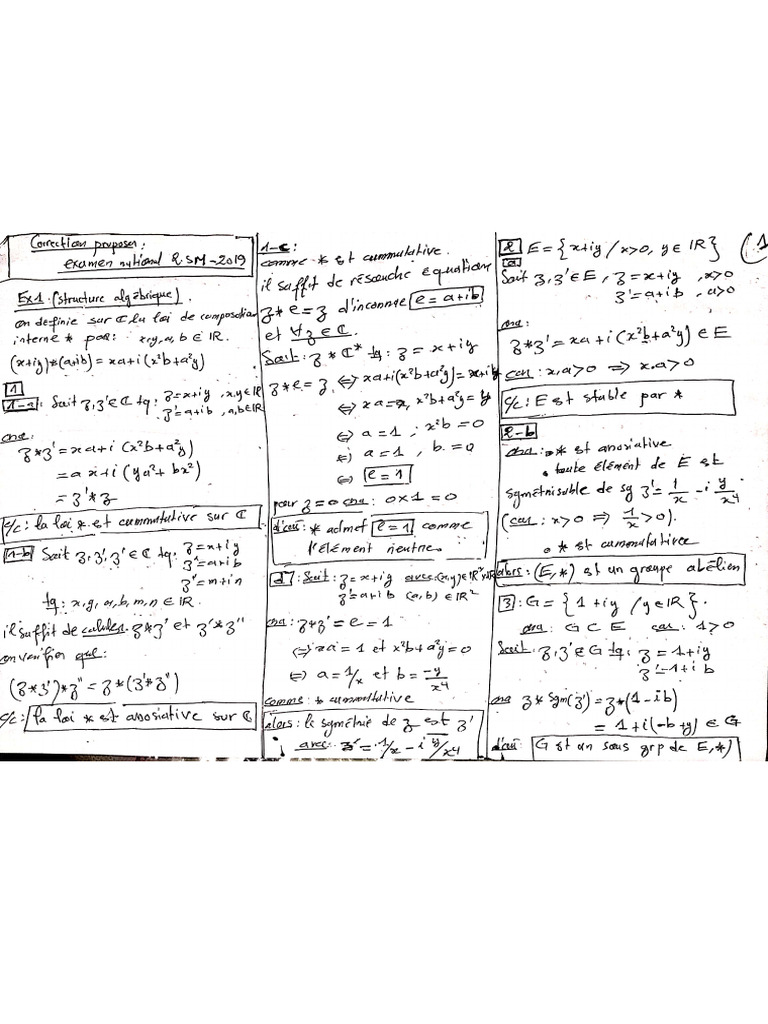 Correction proposer :
examen national 2SM-2019
Ex1 : (structure algébrique).
on definie sur ℂ la loi de composition
interne * par : x,y,a,b ∈ IR.
(x+iy)*(a+ib) = xa+i(x²b+a²y)
1
1-a : Soit z,z'∈ℂ tq : z=x+iy , x,y∈IR
z'=a+ib , a,b∈IR
ona :
z*z' = xa+i(x²b+a²y)
= ax+i(ya²+bx²)
= z'*z
c/c : la loi * est cummutative sur ℂ
1-b Soit z,z',z''∈ℂ tq : z=x+iy
z'=a+ib
z''=m+in
tq : x,y,a,b,m,n∈IR.
il suffit de calculer z*z' et z'*z''
on verifier que :
(z*z')*z'' = z*(z'*z'')
c/c : la loi * est associative sur ℂ
1-c :
comme * est cummutative.
il suffit de résouche equation
z*e=z d'inconnue e=a+ib
et ∀z∈ℂ.
Soit : z*ℂ* tq : z=x+iy
z*e=z ⇔ xa+i(x²b+a²y)=x+iy
⇔ xa=x, x²b+a²y=y
⇔ a=1 ; x²b=0
⇔ a=1, b=0
⇔ e=1
pour z=0 ona : 0x1=0
d'où : * admet e=1 comme
l'élément neutre.
d7 : Soit : z=x+iy avec (x,y)∈IR*xIR
z'=a+ib (a,b)∈IR²
ona : z*z'=e=1
⇔ xa=1 et x²b+a²y=0
⇔ a=1/x et b=-y/x⁴
comme : * cummutative
alors : le symétrie de z est z'
avec : z'=1/x-i y/x⁴
(1
2 E={x+iy / x>0, y∈IR}
a
Soit z,z'∈E, z=x+iy , x>0
z'=a+ib , a>0
ona :
z*z'=xa+i(x²b+a²y)∈E
car : x,a>0 ⇒ x.a>0
c/c : E est stable par *
2-b
ona : . * est assiative
. toute élément de E est
symétrisable de sy z'=1/x-i y/x⁴
(car : x>0 ⇒ 1/x>0).
. * est cummutative
alors : (E,*) est un groupe abélien
3 : G={1+iy / y∈IR}.
ona : G⊂E car : 1>0
Soit : z,z'∈G tq : z=1+iy
z'=1+ib
ona z*Sym(z')=z*(1-ib)
= 1+i(-b+y)∈G
d'où : G est un sous grp de E,*)